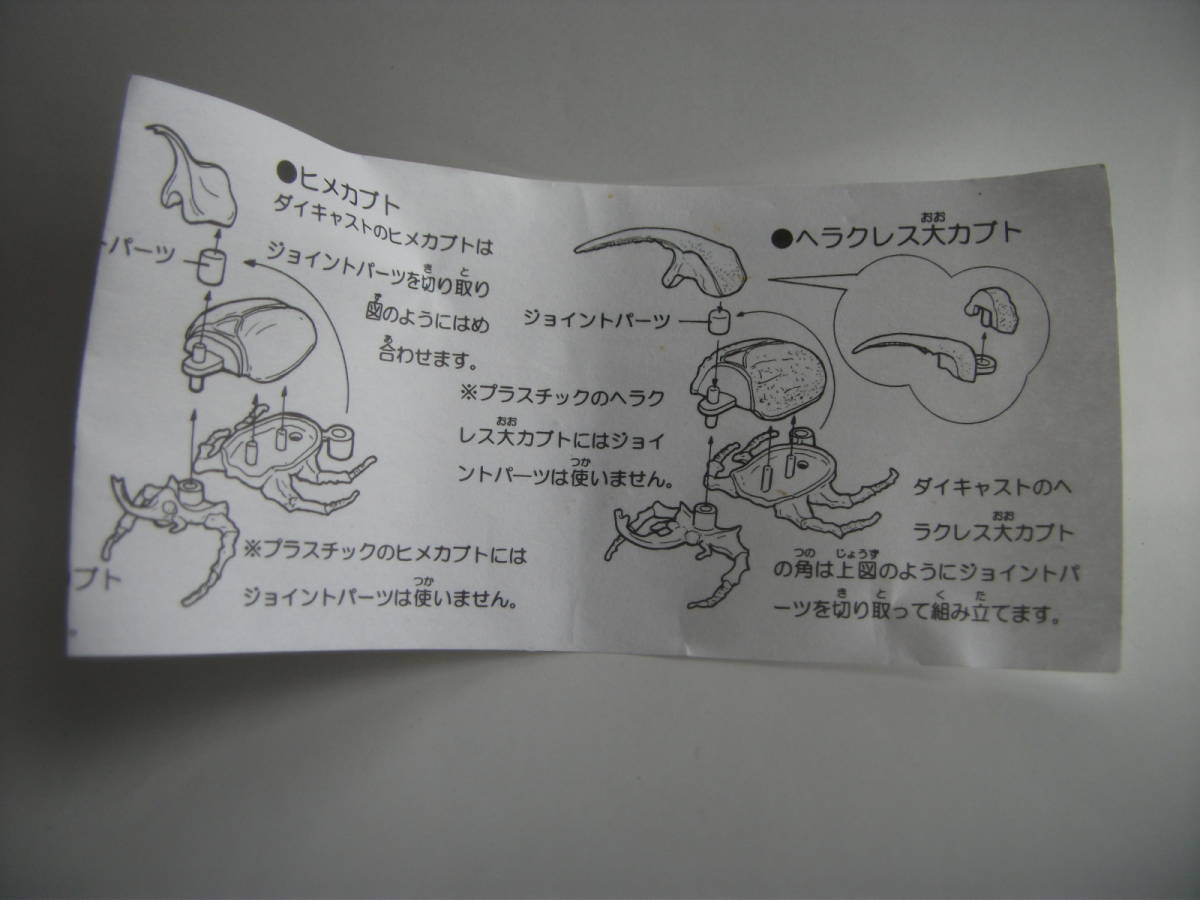 ●ヒメカブト
ダイキャストのヒメカブトは
ジョイントパーツを切り取り
図のようにはめ
合わせます。
トパーツ
※プラスチックのヒメカブトには
ジョイントパーツは使いません。
ブト
●ヘラクレス大カブト
ジョイントパーツ
※プラスチックのヘラク
レス大カブトにはジョイ
ントパーツは使いません。
ダイキャストのヘ
ラクレス大カブト
の角は上図のようにジョイントパ
ーツを切り取って組み立てます。